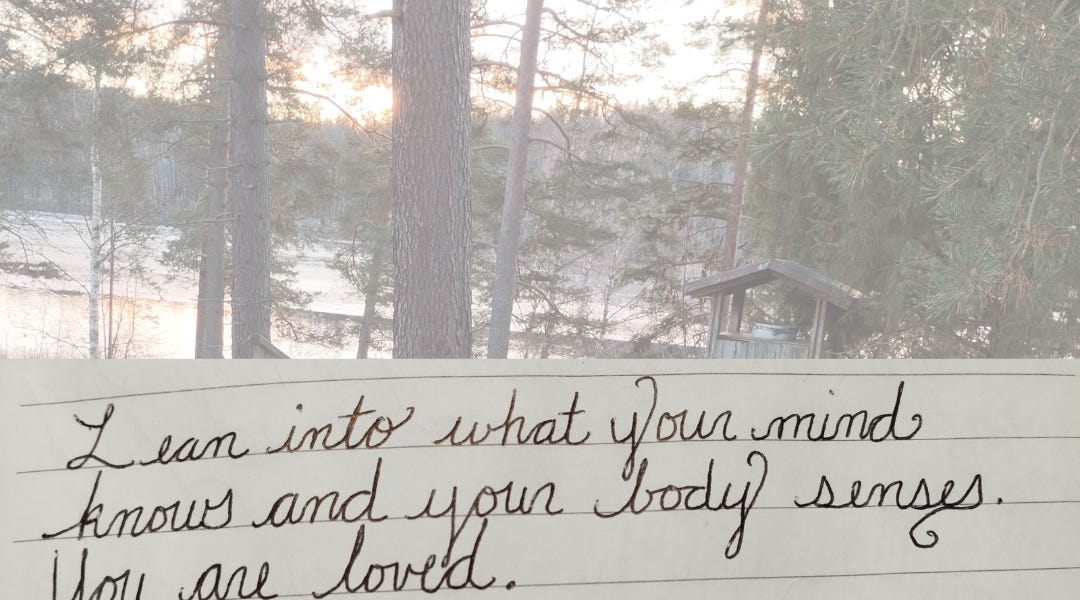 Lean into what your mind
knows and your body senses.
You are loved.